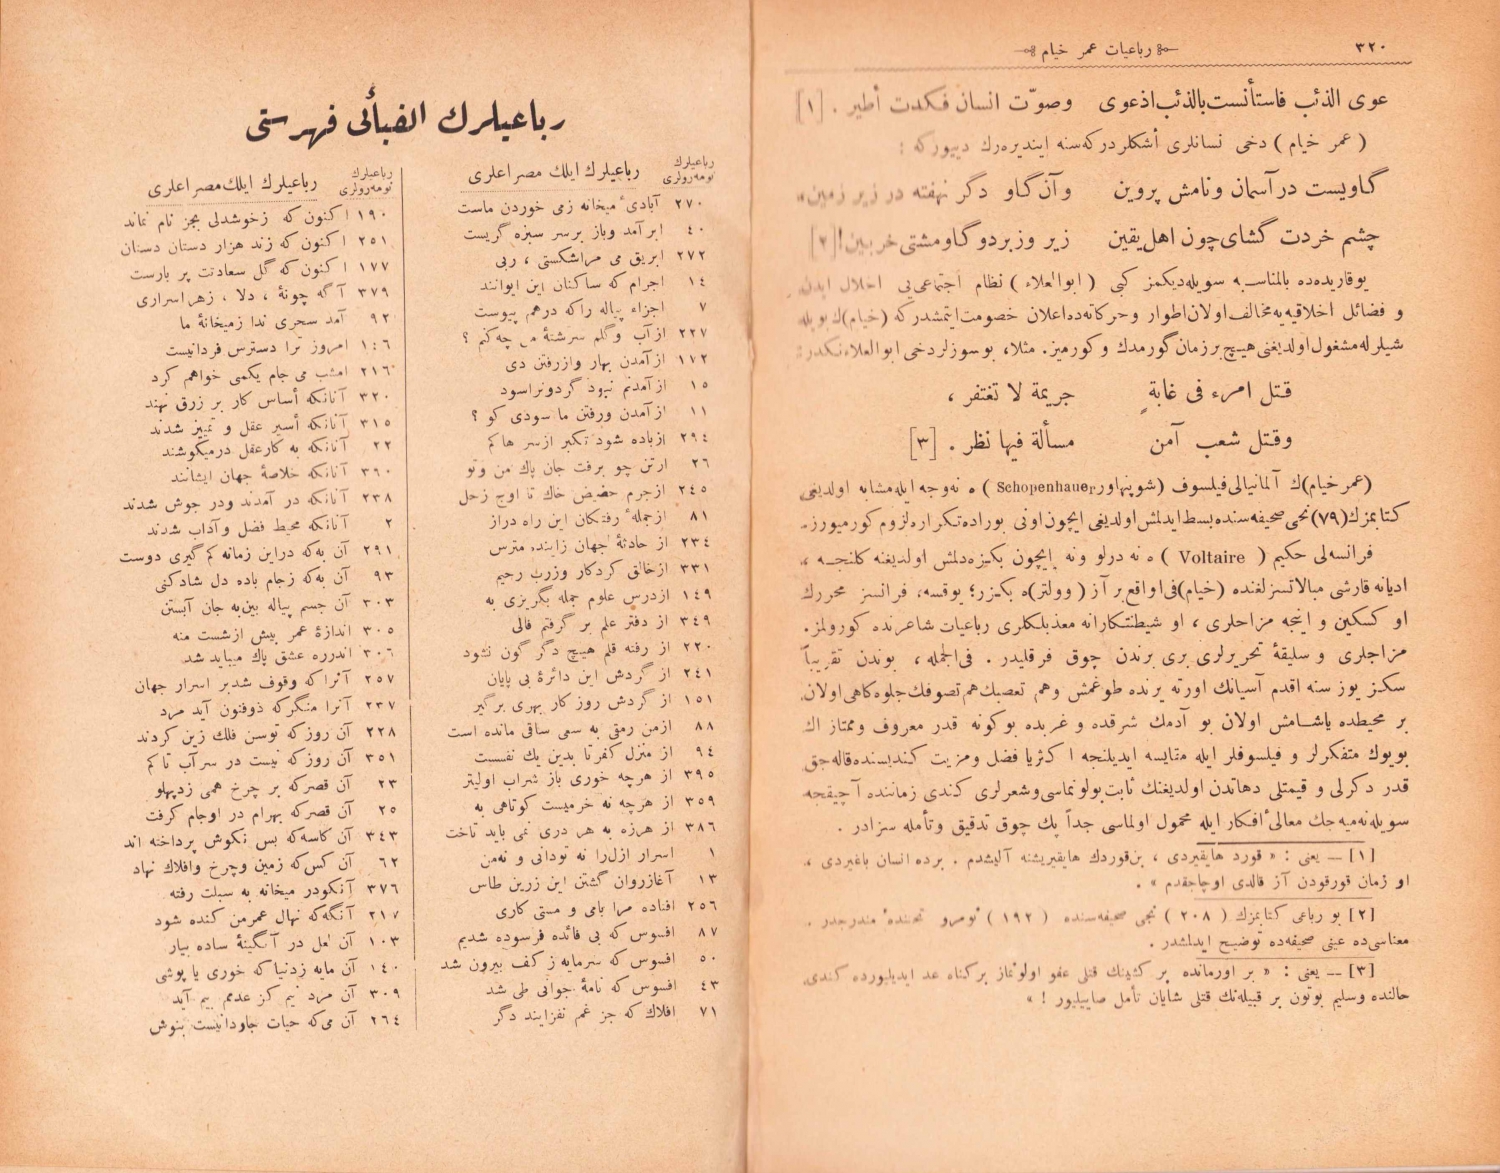 ٣٢٠
رباعيات عمر خيام
عوى الذئب فاستأنست بالذئب اذ عوى وصوّت انسان فكدت أطير . [١]
( عمر خيام ) دخى نسانلرى أشكلر دركه سنه اينديره رك دييوركه :
گاويست در آسمان ونامش پروين وآن گاو دگر نهفته در زير زمين
چشم خردت گشاى چون اهل يقين زير وزبر دو گاو مشتى خر بين ! [٢]
يوقاريده ده بالمناسبه سويله ديكمز كبى ( ابوالعلاء ) نظام اجتماعى يى اخلال ايدن
و فضائل اخلاقيه يه مخالف اولان اطوار وحركاته ده اعلان خصومت ايتمشدركه (خيام)ك بويله
شيلرله مشغول اولديغنى هيچ بر زمان گورمدك و كورميز. مثلا، بو سوزلر دخى ابوالعلاءنكدر :
قتل امرء فى غابةٍ جريمة لا تغتفر ،
وقتل شعب آمن مسألة فيها نظر . [٣]
(عمر خيام)ك آلمانيالى فيلسوف (شوپنهاور Schopenhauer) ه نه وجه ايله مشابه اولديغى
كتابمزك (٧٩)نجى صحيفه سنده بسط ايدلمش اولديغى ايچون اونى بوراده تكراره لزوم كورميورز.
فرانسه لى حكيم ( Voltaire ) ه نه درلو ونه ايچون بكزه دلمش اولديغنه كلنجه ،
اديانه قارشى مبالاتسزلغنده (خيام) فى الواقع بر آز ( وولتر)ه بكزر؛ يوقسه، فرانسز محررك
او كسكين و اينجه مزاحلرى ، او شيطنتكارانه معذبلكلرى رباعيات شاعرنده كورولمز.
مزاجلرى و سليقهٔ تحريرلرى برى برندن چوق فرقليدر . فى الجمله ، بوندن تقريباً
سكز يوز سنه اقدم آسيانك اورته يرنده طوغمش وهم تعصبك هم تصوفك جلوه گاهى اولان
بر محيطده ياشامش اولان بو آدمك شرقده و غربده بوكونه قدر معروف وممتاز اك
بويوك متفكرلر و فيلسوفلر ايله مقايسه ايديلنجه اكثريا فضل ومزيت كنديسنده قاله جق
قدر دكرلى و قيمتلى دهاتدن اولديغنك ثابت بولونماسى وشعرلرى كندى زماننده آچيقجه
سويله نه ميه جك معالئ افكار ايله محمول اولماسى جداً پك چوق تدقيق وتأمله سزادر .
[١] — يعنى : « قورد هايقيردى ، بن قوردك هايقيريشنه آليشدم . برده انسان باغيردى ،
او زمان قورقودن آز قالدى اوچاجقدم » .
[٢] بو رباعى كتابمزك ( ٢٠٨ ) نجى صحيفه سنده ( ١٩٢ ) نومرو تحتنده مندرجدر .
معناسى ده عينى صحيفه ده توضيح ايدلمشدر .
[٣] — يعنى : « بر اورمانده بر كشينك قتلى عفو اولونماز بر كناه عد ايديليورده كندى
حالنده وسليم بوتون بر قبيله نك قتلى شايان تأمل صاييليور ! »
رباعيلرك الفبائى فهرستى
رباعيلرك نومه رولرى رباعيلرك ايلك مصراعلرى
٢٧٠ آبادئ ميخانه زمى خوردن ماست
٤٠ ابر آمد وباز بر سر سبزه گريست
٢٧٢ ابريق مى مراشكستى ، ربى
١٤ اجرام كه ساكنان اين ايوانند
٧ اجزاء پياله راكه درهم پيوست
٢٢٧ از آب وگلم سرشتهٔ من چه كنم ؟
١٧٢ از آمدن بهار واز رفتن دى
١٥ از آمدنم نبود گردونرا سود
١١ از آمدن ورفتن ما سودى كو ؟
٢٩٤ از باده شود تكبر از سر هاكم
٢٦ از تن چو برفت جان پاك من وتو
٢٤٥ از جرم حضيض خاك تا اوج زحل
٨١ از جملهٔ رفتكان اين راه دراز
٢٣٤ از حادثهٔ جهان زاينده مترس
٣٣١ از خالق كردكار وز رب رحيم
١٤٩ از درس علوم جمله بگريزى به
٣٤٩ از دفتر علم بر گرفتم فالى
٢٢٠ از رفته قلم هيچ دگر گون نشود
٢٤١ از گردش اين دائرهٔ بى پايان
١٥١ از گردش روز كار بهرى برگير
٨٨ از من رمقى به سعى ساقى مانده است
٩٤ از منزل كفر تا بدين يك نفسست
٣٩٥ از هرچه خورى باز شراب اوليتر
٣٥٩ از هرچه نه خرميست كوتاهى به
٣٨٦ از هرزه به هر درى نمى بايد تاخت
١ اسرار ازل را نه تودانى و نه من
١٣ آغاز روان گشتن اين زرين طاس
٢٥٦ افتاده مرا بامى و مستى كارى
٨٧ افسوس كه بى فائده فرسوده شديم
٥٠ افسوس كه سرمايه ز كف بيرون شد
٤٣ افسوس كه نامهٔ جوانى طى شد
٧١ افلاك كه جز غم نفزايند دگر
رباعيلرك نومه رولرى رباعيلرك ايلك مصراعلرى
١٩٠ اكنون كه زخوشدلى بجز نام نماند
٢٥١ اكنون كه زند هزار دستان دستان
١٧٧ اكنون كه گل سعادتت پر بارست
٣٧٩ آگه چونهٔ ، دلا ، زهر اسرارى
٩٢ آمد سحرى ندا زميخانهٔ ما
١٤٦ امروز ترا دسترس فردا نيست
٢١٦ امشب مى جام يكمى خواهم كرد
٣٢٠ آنانكه أساس كار بر زرق نهند
٣١٥ آنانكه أسير عقل و تمييز شدند
٢٢ آنانكه به كار عقل درميكوشند
٣٩٠ آنانكه خلاصهٔ جهان ايشانند
٢٣٨ آنانكه در آمدند ودر جوش شدند
٢ آنانكه محيط فضل وآداب شدند
٢٩١ آن به كه دراين زمانه كم گيرى دوست
٩٣ آن به كه زجام باده دل شاد كنى
٣٠٣ آن جسم پياله بين به جان آبستن
٣٠٥ اندازهٔ عمر بيش از شست منه
٣٠٦ اندرره عشق پاك ميبايد شد
٢٥٧ آنرا كه وقوف شد بر اسرار جهان
٢٣٧ آنرا منگر كه ذوفنون آيد مرد
٢٢٨ آن روز كه توسن فلك زين كردند
٣٥١ آن روز كه نيست در سر آب تاكم
٢٣ آن قصر كه بر چرخ همى زد پهلو
٢٥ آن قصر كه بهرام در او جام گرفت
٣٤٣ آن كاسه كه بس نكوش پرداخته اند
٦٢ آن كس كه زمين وچرخ وافلاك نهاد
٣٧٦ آنكو در ميخانه به سبلت رفته
٢١٧ آنگه كه نهال عمر من كنده شود
١٠٣ آن لعل در آبگينهٔ ساده بيار
١٤٠ آن مايه زدنيا كه خورى يا پوشى
٣٠٩ آن مرد نيم كز عدمم بيم آيد
٢٦٤ آن مى كه حيات جاودانيست بنوش